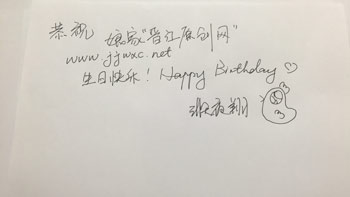 恭祝 娘家"晋江原创网"
www.jjwxc.net
生日快乐! Happy Birthday ♡